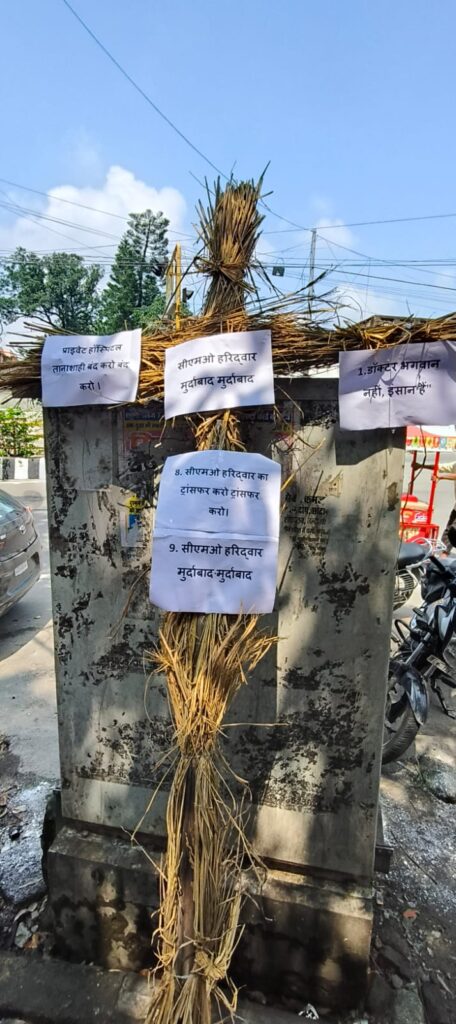 प्राइवेट हॉस्पिटल
तानाशाही बंद करो बंद
करो ।
सीएमओ हरिद्वार
मुर्दाबाद मुर्दाबाद
1.डॉक्टर भगवान
नहीं, इंसान है
8. सीएमओ हरिद्वार का
ट्रांसफर करो ट्रांसफर
करो।
9. सीएमओ हरिद्वार
मुर्दाबाद-मुर्दाबाद